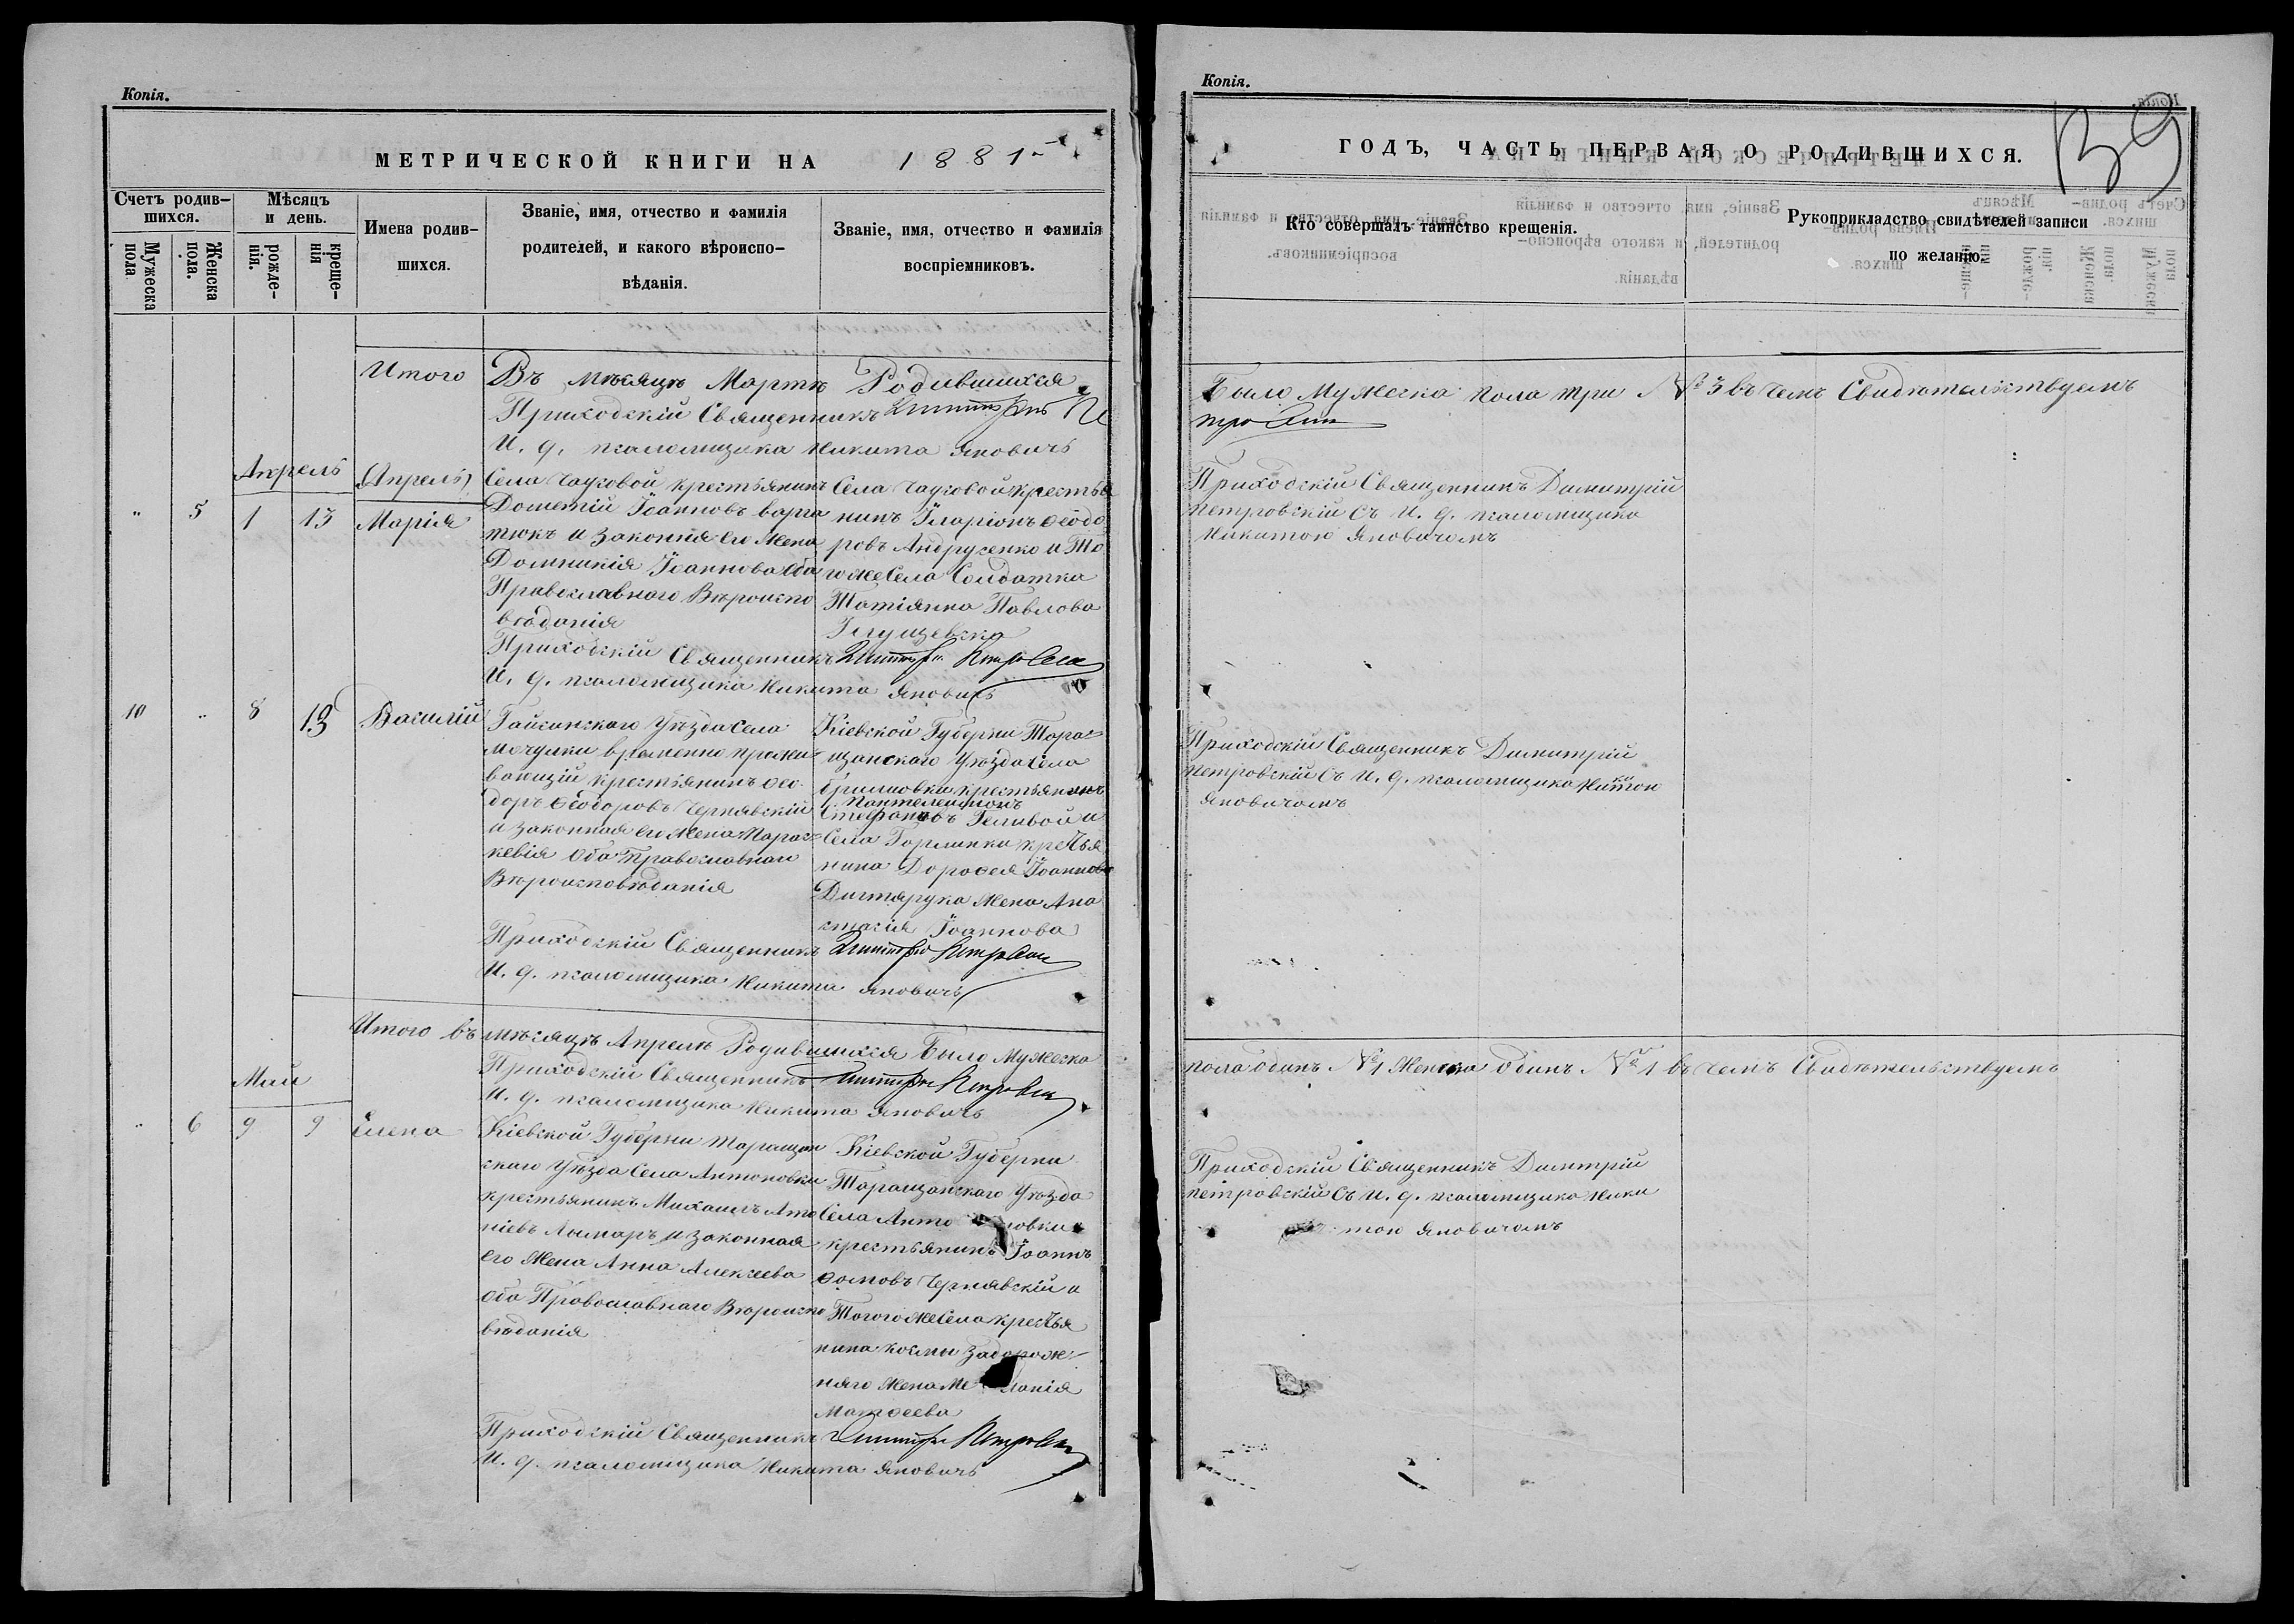 Копія.
МЕТРИЧЕСКОЙ КНИГИ НА 1881
Счетъ родив-
шихся.
Мужеска
пола
Женска
пола.
Мѣсяцъ
и день.
рожде-
нія.
креще-
нія
Имена родив-
шихся.
Званіе, имя, отчество и фамилія
родителей, и какого вѣроиспо-
вѣданія.
Званіе, имя, отчество и фамилія
воспріемниковъ.
Итого Въ мѣсяцѣ Мартѣ Родившихся
Приходскій Священникъ
И. д. псаломщика Никита Яновичъ
Апрель
Апрель
5
1
13
Марія
Села Чауговой крестьянинъ
Дометій Іоанновъ
и законная его жена
Домникія Іоаннова оба
Православнаго Вѣроиспо
вѣданія
Села Чауговой крестья
нинъ Иларіонъ Ѳеодо
ровъ Андрусенко и То
го же Села Солдатка
Татіанна Павлова
Приходскій Священникъ
И. д. псаломщика Никита Яновичъ
10
8
13
Василій
Гайсинскаго Уѣзда Села
Мочулки временно прожи
вающій крестьянинъ Ѳео
доръ Ѳеодоровъ Чернявскій
и законная его жена Парас
кевія оба Православнаго
Вѣроисповѣданія
Кіевской Губерни Тара
щанскаго Уѣзда Села
крестьянинъ
Пантелеимонъ
Стефановъ и
Села крестья
нина Дорофея Іоаннова
Дигтярука жена Ана
стасія Іоаннова
Приходскій Священникъ
И. д. псаломщика Никита Яновичъ
Итого въ мѣсяцѣ Апрелѣ Родившихся Было Мужеска
Приходскій Священникъ
И. д. псаломщика Никита Яновичъ
Май
6
9
9
Елена
Кіевской Губерни Таращан
скаго Уѣзда Села Антоновки
крестьянинъ Михаилъ
Лымаръ и законная
его жена Анна Алексеева
оба Православнаго Вѣроиспо
вѣданія
Кіевской Губерни
Таращанскаго Уѣзда
Села Антоновки
крестьянинъ Іоаннъ
Ѳомовъ Чернявскій и
Того же Села крестья
нина Космы Задорож-
няго жена Меланія
Матѳеева
Приходскій Священникъ
И. д. псаломщика Никита Яновичъ
Копія.
ГОДЪ, ЧАСТЬ ПЕРВАЯ О РОДИВШИХСЯ.
Кто совершалъ таинство крещенія.
Рукоприкладство свидѣтелей записи
по желанію.
Было Мужеска пола три № 3 въ чемъ Свидѣтельствуемъ
Приходскій Священникъ Димитрій
Петровскій съ И. д. псаломщика
Никитою Яновичомъ
Приходскій Священникъ Димитрій
Петровскій съ И. д. псаломщика Никитою
Яновичомъ
пола одинъ № 1 Женска одинъ № 1 въ чемъ Свидѣтельствуемъ
Приходскій Священникъ Димитрій
Петровскій съ И. д. псаломщика Ники
тою Яновичомъ